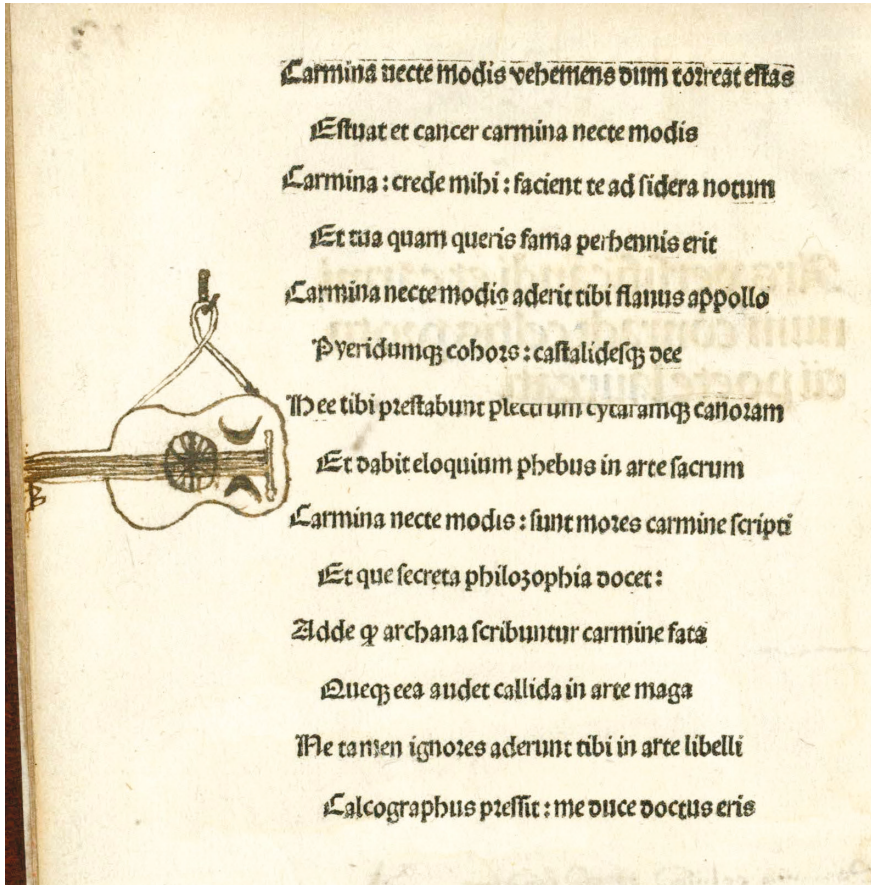 Carmina necte modis vehemens dum torreat estas
Estuat et cancer carmina necte modis
Carmina : crede mihi : facient te ad sidera notum
Et tua quam queris fama perhennis erit
Carmina necte modis aderit tibi flauus appollo
Pyeridumqꝫ cohors : castalidesqꝫ dee
Hee tibi prestabunt plectrum cytaramqꝫ canoram
Et dabit eloquium phebus in arte sacrum
Carmina necte modis : sunt mores carmine scripti
Et que secreta philozophia docet :
Adde ꝙ archana scribuntur carmine fata
Queqꝫ eea audet callida in arte maga
Ne tamen ignores aderunt tibi in arte libelli
Calcographus pressit : me duce doctus eris